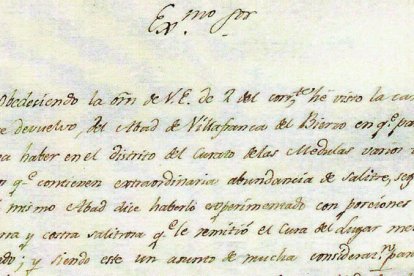 Ex.mo Sor
Obedeciendo la orn de V.E. de 2 del corr.te hé visto la car
e devuelvo, del Abad de Villafranca del Bierzo en q.e pa
a haber en el distrito del Curato de las Medulas varios
n q.e contienen extraordinaria abundancia de salitre, seg
l mismo Abad dice haberlo experimentado con porciones
ra y costra salitrosa q.e le remitió el Cura del Lugar me
do; y siendo este un asunto de mucha considerac.n par